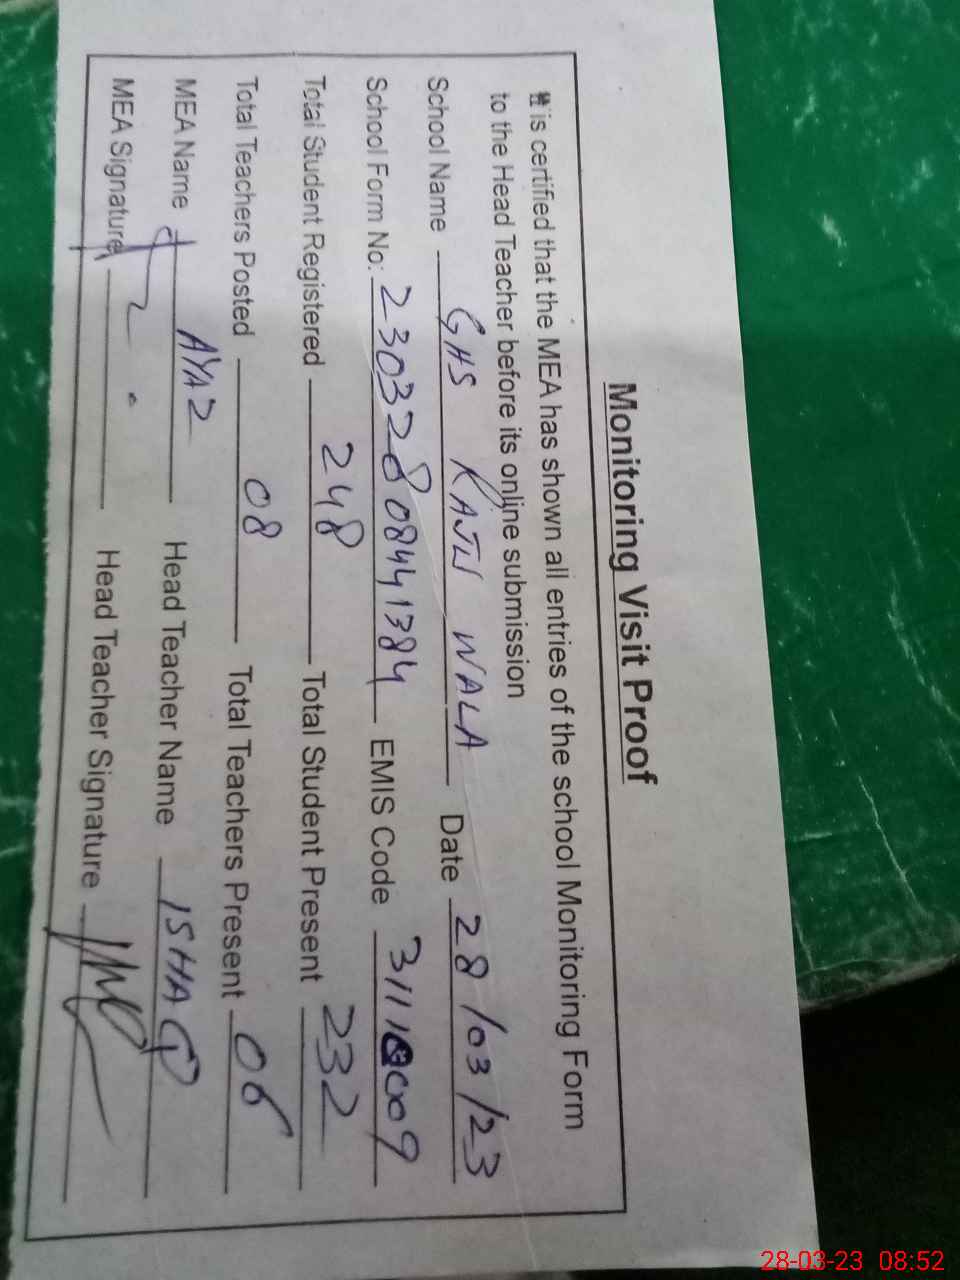 Monitoring Visit Proof
It is certified that the MEA has shown all entries of the school Monitoring Form
to the Head Teacher before its online submission
School Name GHS KAJLI WALA Date 28/03/23
School Form No: 23032808441384 EMIS Code
Total Student Registered 248 Total Student Present 232
Total Teachers Posted 08 Total Teachers Present 06
MEA Name AYAZ Head Teacher Name ISHAQ
MEA Signature Head Teacher Signature
28-03-23 08:52